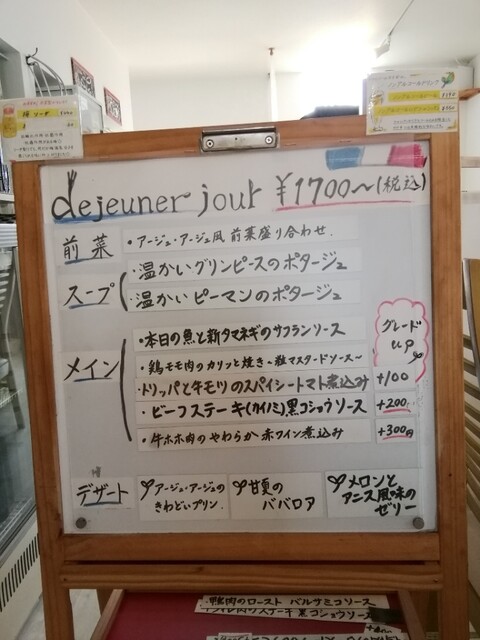 dejeuner jour ¥1700〜(税込)
前菜
・アージュ・アージュ風 前菜盛り合わせ.
スープ
・温かいグリンピースのポタージュ
・温かい ピーマンのポタージュ
グレード
up
メイン
・本日の魚と新タマネギのサフランソース
・鶏モモ肉のカリッと焼き〜粒マスタードソース〜
・トリッパと牛モツのスパイシートマト煮込み +100
・ビーフステーキ(カイノミ)黒コショウソース +200
・牛ホホ肉のやわらか 赤ワイン煮込み +300円
デザート
アージュ・アージュの
きわどいプリン.
甘夏の
ババロア
メロンと
アニス風味の
ゼリー
鴨肉のロースト バルサミコソース
ステーキ 黒コショウソース